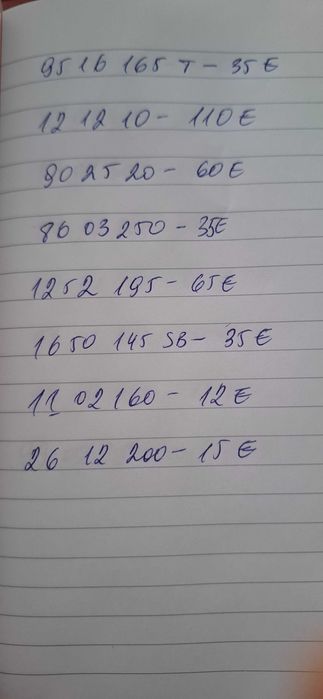 9516 165 T - 35€
12 12 10 - 110€
902520 - 60€
8603250 - 35€
1252 195 - 65€
1650 145 SB - 35€
11 02 160 - 12€
26 12 200 - 15€